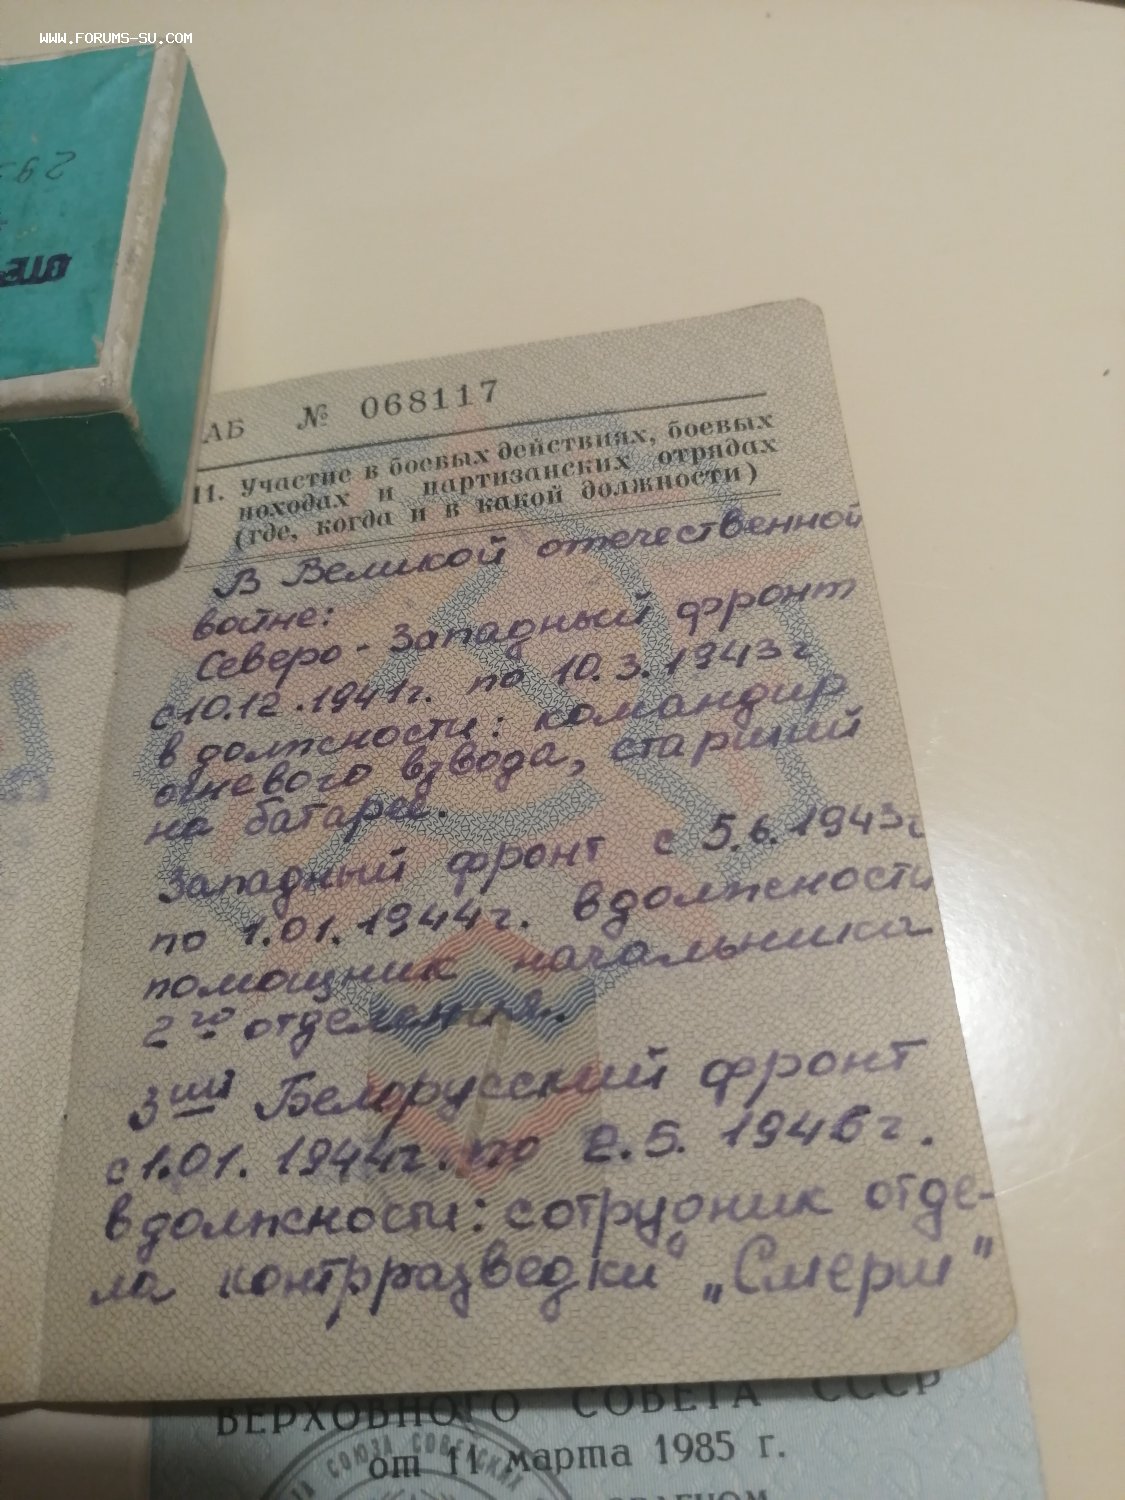 WWW.FORUMS-SU.COM
АБ № 068117
11. Участие в боевых действиях, боевых
походах и партизанских отрядах
(где, когда и в какой должности)
В Великой отечественной
войне:
Северо-Западный фронт
с 10.12.1941г. по 10.3.1943г
в должности: командир
огневого взвода, старший
на батарее.
Западный фронт с 5.6.1943г
по 1.01.1944г. в должности
помощник начальника
2го отделения.
3ий Белорусский фронт
с 1.01.1944г. по 2.5.
в должности: сотрудник отде-
ла контрразведки „Смерш"
ВЕРХОВНОГО СОВЕТА СССР
от 11 марта 1985 г.